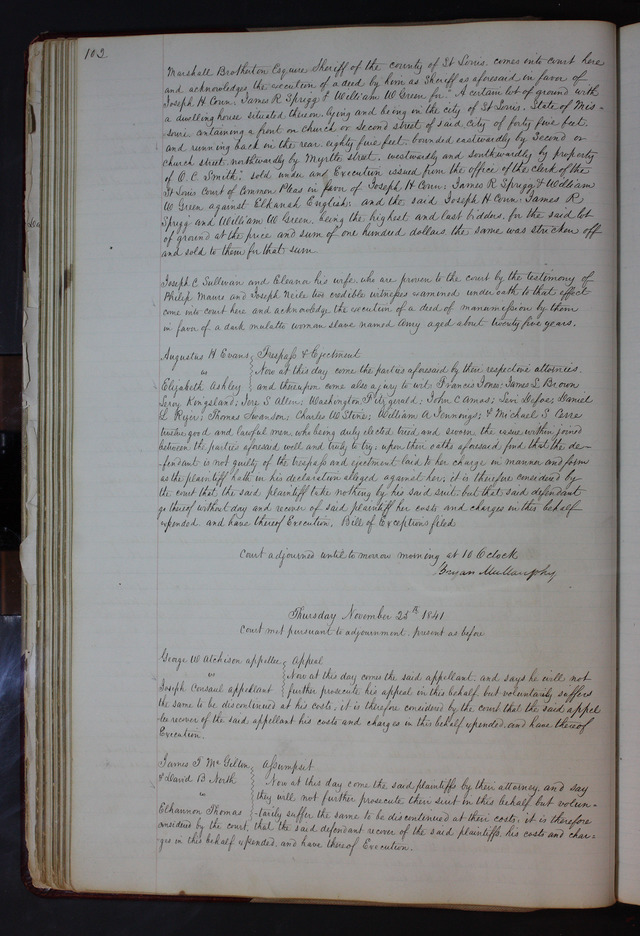 102
Marshall Brotherton Esquire Sheriff of the county of St Louis. comes into court here
and acknowledges the execution of a deed by him as Sheriff as aforesaid in favor of
Joseph H Conn, James R Sprigg & William W Green for "A certain lot of ground with
a dwelling house situated thereon, lying and being in the city of St Louis, State of Mis-
souri containing a front on church or Second street of said city of forty five feet.
and running back in the rear eighty five feet. bounded eastwardly by Second or
church street, northwardly by Myrtle street, westwardly and southwardly by property
of O. C. Smith", sold under and Execution issued from the office of the clerk of the
St Louis Court of Common Pleas in favor of Joseph H Conn, James R Sprigg & William
W Green against Elkanah English, and the said Joseph H Conn James R
Sprigg and William W Green, being the highest and last bidders for the said lot
of ground at the price and sum of one hundred dollars the same was stricken off
and sold to them for that sum
Joseph C Sullivan and Eleanor his wife, who are proven to the court by the testimony of
Philip Maure and Joseph Neile two credible witnesses examined under oath to that effect
come into court here and acknowledge the execution of a deed of manumission by them
in favor of a dark mulatto woman slave named Amy aged about twenty five years.
Augustus H Evans Trespass & Ejectment
vs Now at this day come the parties aforesaid by their respective attornies.
Elizabeth Ashley and thereupon come also a jury to wit Francis Jones; James L Brown
Leroy Kingsland; Ives S Allen; Washington Fitzgerald; John C Amas; Levi Defoe; Daniel
L Ryer; Thomas Swanson; Charles W Stine; William A Jennongs; & Michael S Cerre
twelve good and lawful men, who being duly elected tried and sworn the issue within joined
between the parties aforesaid well and truly to try; upon their oaths aforesaid find that the de-
fendant is not guilty of the trespass and ejectment laid to her charge in manner and form
as the plaintiff hath in his declaration alleged against her, it is therefore considered by
the court that the said plaintiff take nothing by his said suit, but that said defendant
go thereof without day and recover of said plaintiff her costs and charges in this behalf
expended and have thereof Execution. Bill of Exceptions filed
Court adjourned until to morrow morning at 10 Oclock
Bryan Mullanphy
Thursday November 25th 1841
Court met pursuant to adjournment. present as before
George W Atchison appellee Appeal
vs Now at this day comes the said appellant. and says he will not
Joseph Consaul appellant further prosecute his appeal in this behalf but voluntarily suffers
the same to be discontinued at his costs; it is therefore considered by the court that the said appel
lee recover of the said appellant his costs and charges in this behalf expended, and have thereof
Execution.
James T Mc Gelton Assumpsit
& David B North Now at this day come the said plaintiffs by their attorney, and say
vs they will not further prosecute their suit in this behalf but volun-
Elkannon Thomas tarily suffer the same to be discontinued at their costs; it is therefore
considered by the court, that the said defendant recover of the said plaintiffs, his costs and char-
ges in this behalf expended, and have thereof Execution.